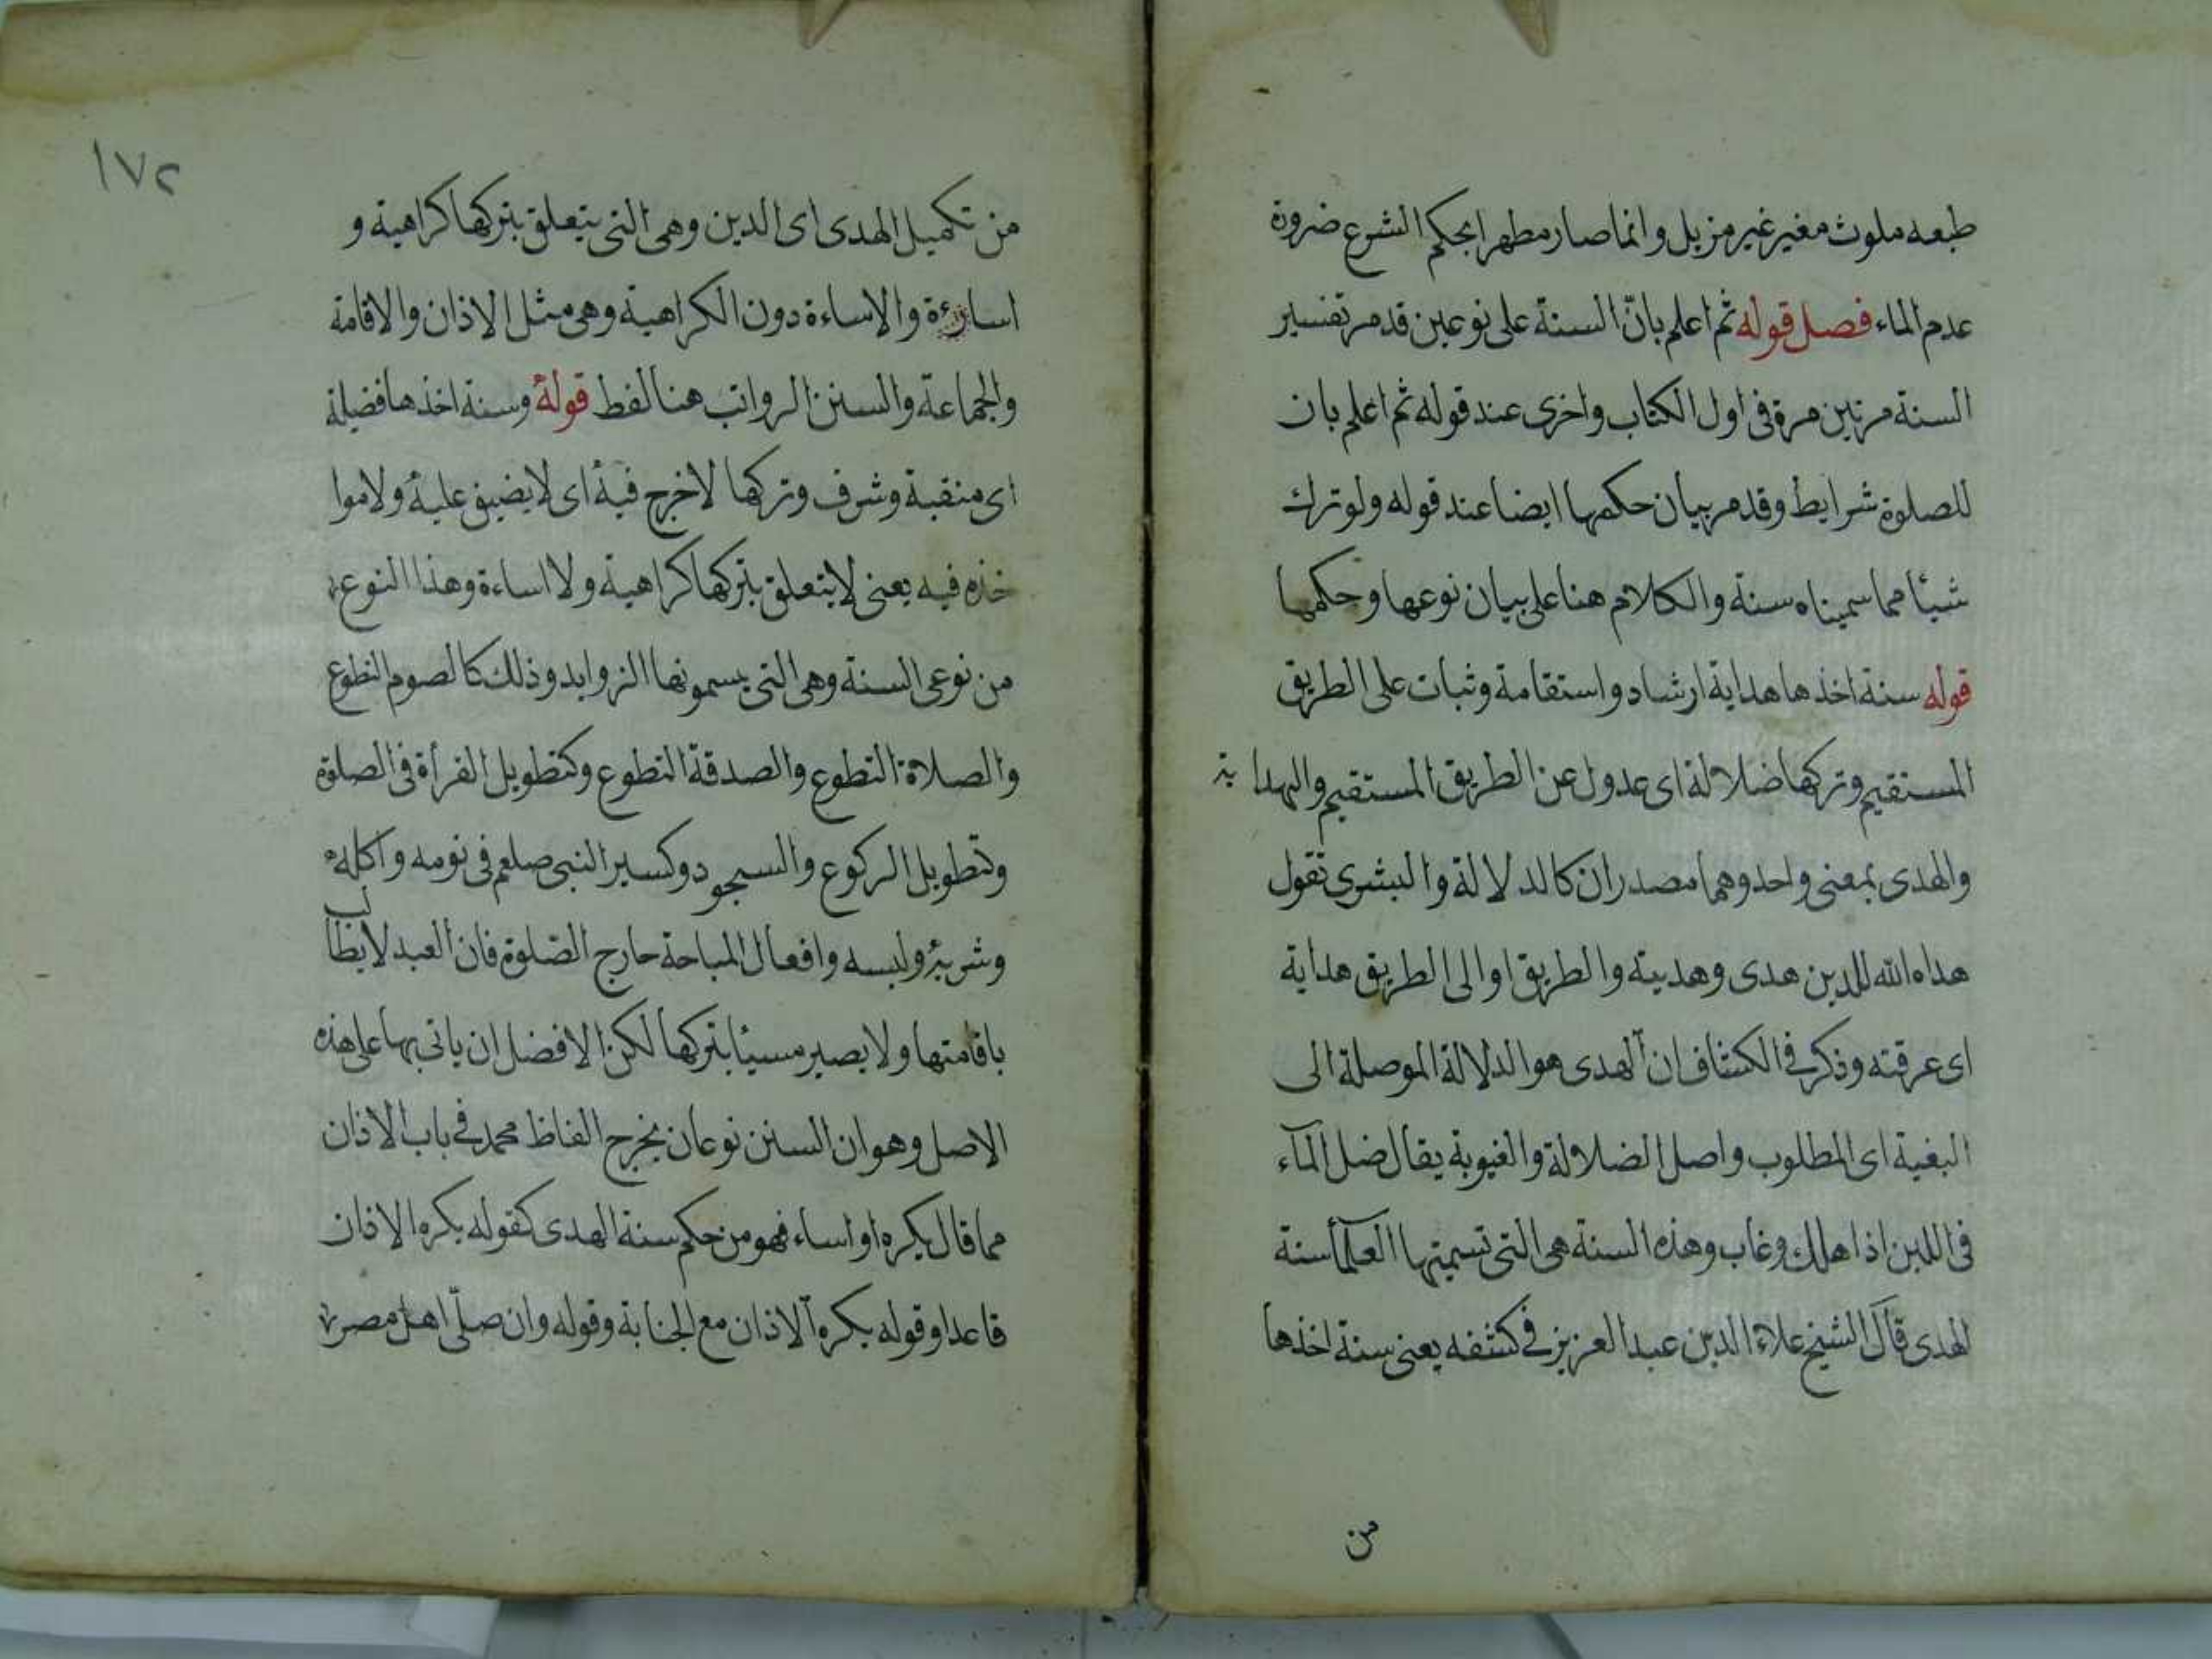 طبعه ملوث مغير غير مزيل وانما صار مطهرا بحكم الشرع ضرورة
عدم الماء فصل قوله ثم اعلم بانّ السنة على نوعين قد مر تفسير
السنة مرتين مرة فى اول الكتاب واخرى عند قوله ثم اعلم بان
للصلوة شرايط وقد مر بيان حكمها ايضا عند قوله ولو ترك
شيئا مما سميناه سنة والكلام هنا على بيان نوعها وحكمها
قوله سنة اخذها هداية ارشاد واستقامة وثبات على الطريق
المستقيم وتركها ضلالة اى عدول عن الطريق المستقيم والهداية
والهدى بمعنى واحد وهما مصدران كالدلالة والبشرى تقول
هداه الله للدين هدى وهديته والطريق او الى الطريق هداية
اى عرفته وذكر فى الكشاف ان الهدى هو الدلالة الموصلة الى
البغية اى المطلوب واصل الضلالة والغيوبة يقال ضل المآء
فى اللبن اذا هلك وغاب وهذه السنة هى التى تسميتها العلمآ سنة
الهدى قال الشيخ علاء الدين عبد العزيز فى كشفه يعنى سنة اخذها
من
١٧٢
من تكميل الهدى اى الدين وهى التى يتعلق بتركها كراهية و
اساءة والاساءة دون الكراهية وهى مثل الاذان والاقامة
والجماعة والسنن الرواتب هنا لفظ قوله وسنة اخذها فضيلة
اى منقبة وشرف وتركها لا خرج فيه اى لا يضيق عليه ولا موا
خذه فيه يعنى لا يتعلق بتركها كراهية ولا اساءة وهذا النوع
من نوعى السنة وهى التى يسمونها الزوايد وذلك كالصوم التطوع
والصلاة التطوع والصدقة التطوع وكتطويل القرأة فى الصلوة
وتطويل الركوع والسجود وكسير النبى صلعم فى نومه واكله
وشربه ولبسه وافعال المباحة خارج الصلوة فان العبد لا يطالب
باقامتها ولا يصير مسيئا بتركها لكن الافضل ان ياتى بها على هذه
الاصل وهو ان السنن نوعان يخرج الفاظ محمد فى باب الاذان
مما قال يكره او اساء فهو من حكم سنة الهدى كقوله يكره الاذان
قاعدا وقوله يكره الاذان مع الجنابة وقوله وان صلّى اهل مصر